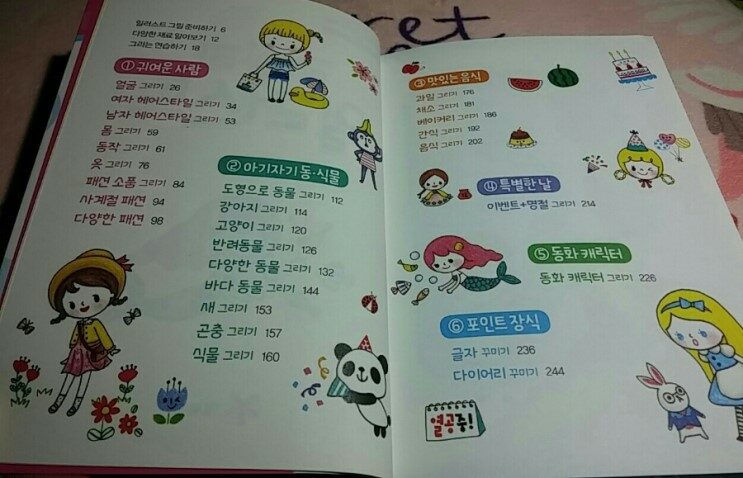 일러스트 그림 준비하기 6
다양한 재료 알아보기 12
그리는 연습하기 18
① 귀여운 사람
얼굴 그리기 26
여자 헤어스타일 그리기 34
남자 헤어스타일 그리기 53
몸 그리기 59
동작 그리기 61
옷 그리기 76
패션 소품 그리기 84
사계절 패션 94
다양한 패션 98
② 아기자기 동·식물
도형으로 동물 그리기 112
강아지 그리기 114
고양이 그리기 120
반려동물 그리기 126
다양한 동물 그리기 132
바다 동물 그리기 144
새 그리기 153
곤충 그리기 157
식물 그리기 160
③ 맛있는 음식
과일 그리기 176
채소 그리기 181
베이커리 그리기 186
간식 그리기 192
음식 그리기 202
④ 특별한 날
이벤트+명절 그리기 214
⑤ 동화 캐릭터
동화 캐릭터 그리기 226
⑥ 포인트 장식
글자 꾸미기 236
다이어리 꾸미기 244
열공중!